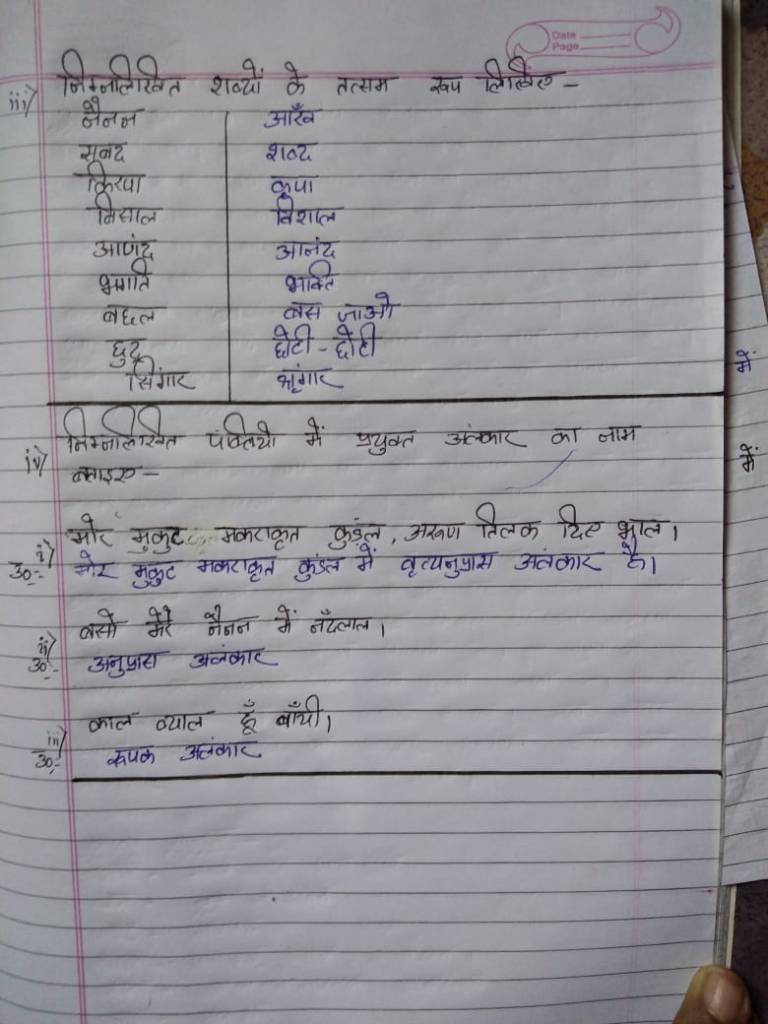 Date
Page
iii) निम्नलिखित शब्दों के तत्सम रूप लिखिए -
नैनन आँख
सबद शब्द
किरपा कृपा
बिसाल विशाल
आणंद आनंद
भगति भक्ति
बद्दल बस जाओ
छुद्र छोटी - छोटी
सिंगार श्रृंगार
iv) निम्नलिखित पंक्तियों में प्रयुक्त अलंकार का नाम
बताइए -
i) मोर मुकुट मकराकृत कुंडल, अरुण तिलक दिए भाल।
उ०:- मोर मुकुट मकराकृत कुंडल में वृत्यनुप्रास अलंकार है।
ii) बसो मेरे नैनन में नँदलाल।
उ०:- अनुप्रास अलंकार
iii) काल व्याल हूँ बाँची।
उ०:- रूपक अलंकार
में
में